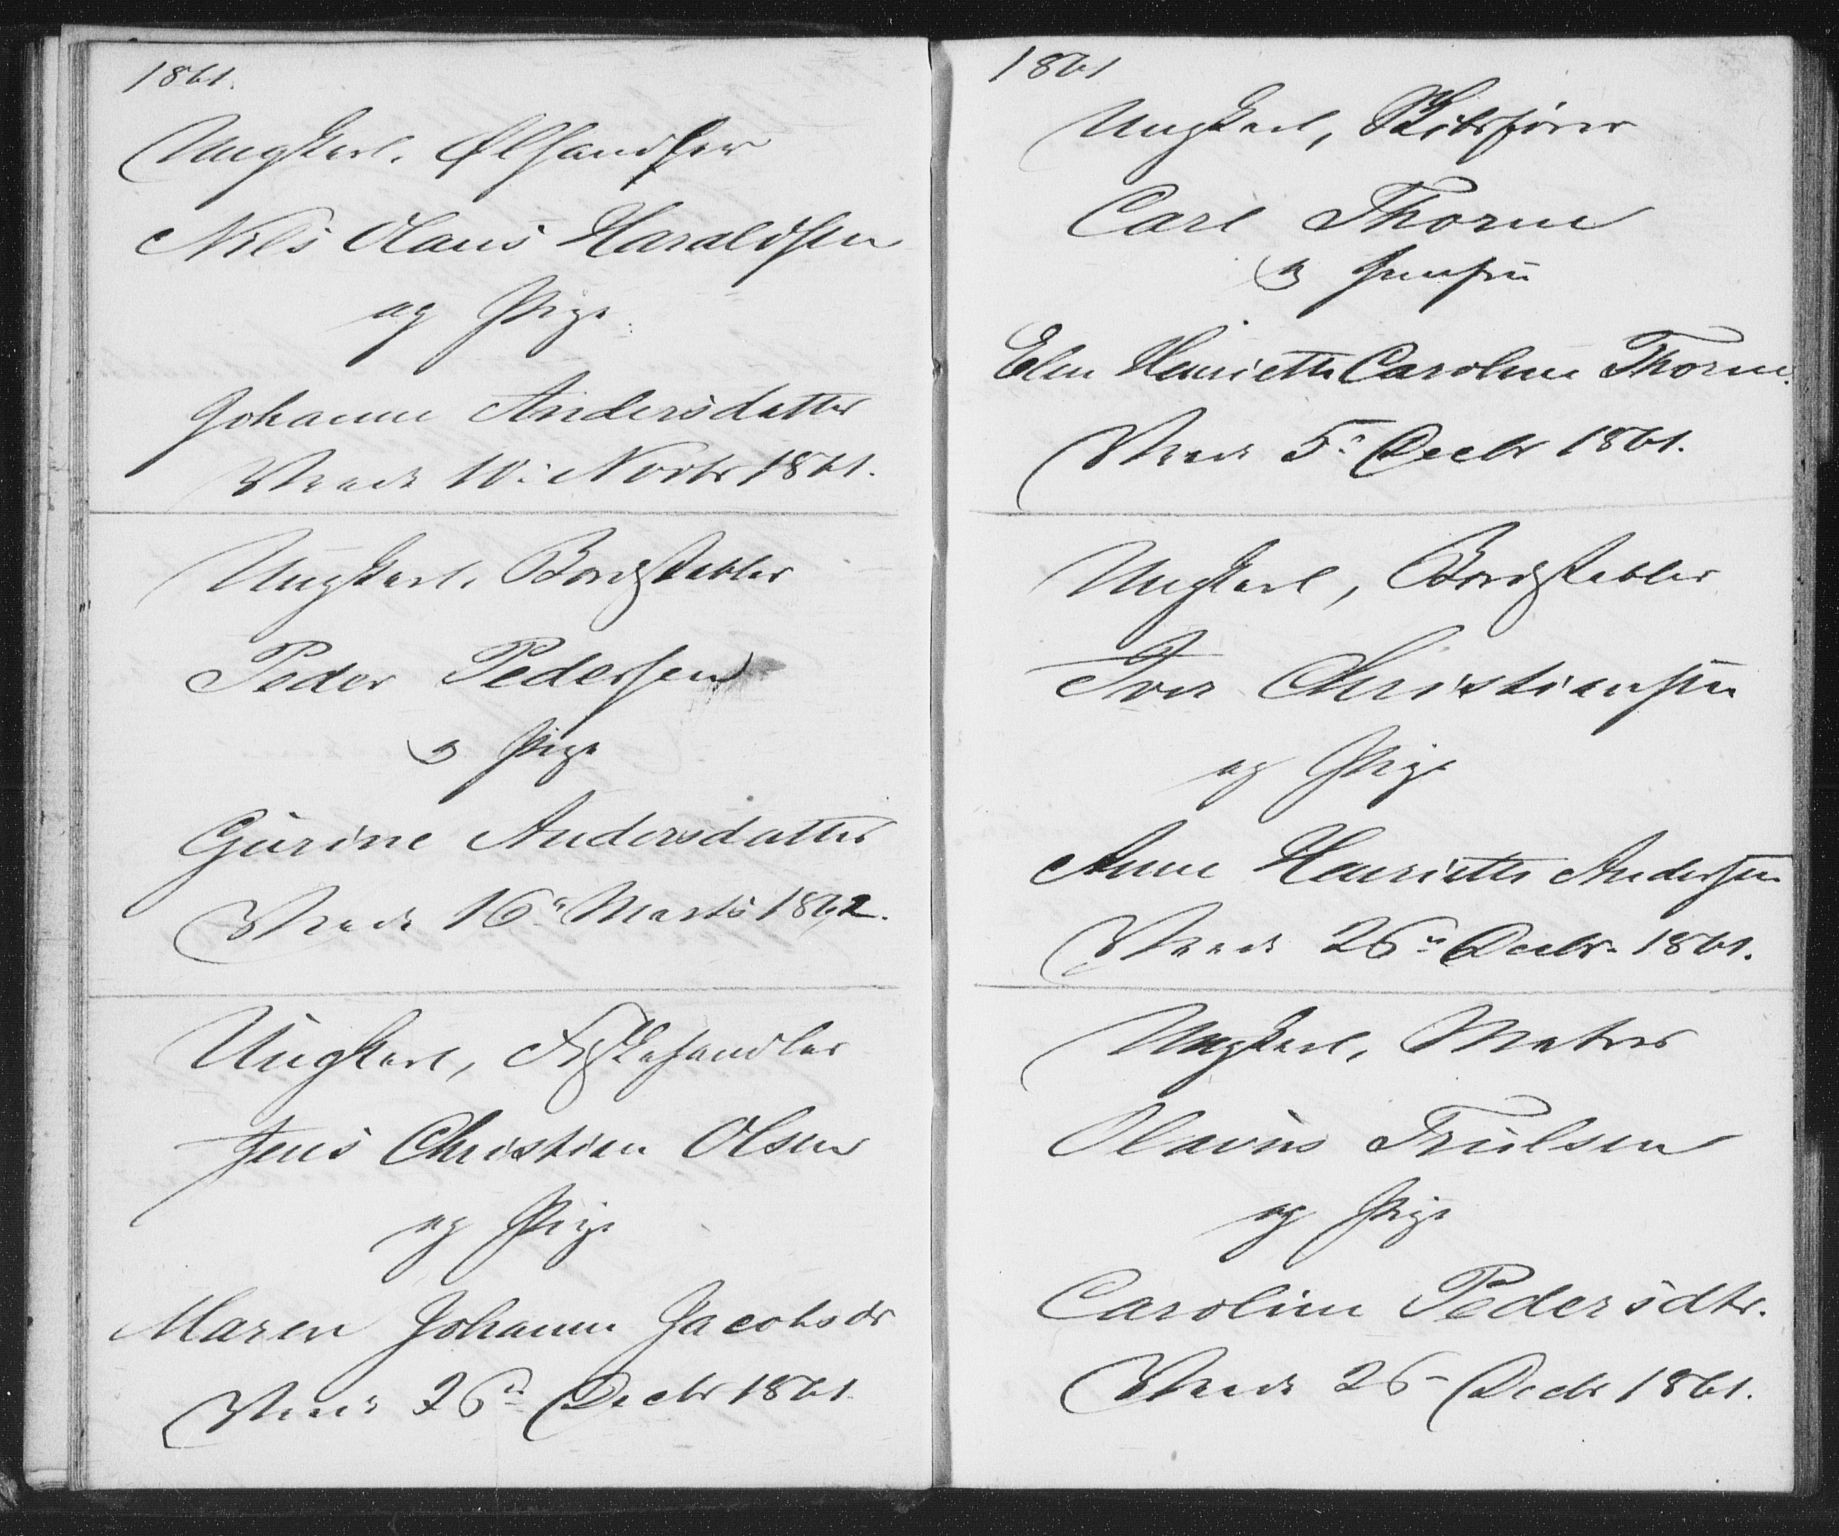 1861.
Ungkarl, Ølhandler
Nils Olaus Haraldsen
og Pige
Johanne Andersdatter
Viede 10: Novbr 1861.
Ungkarl, Bordstabler
Peder Pedersen
og Pige
Gurine Andersdatter
Viede 16: Marts 1862.
Ungkarl, Fiskehandler
Jens Christian Olsen
og Pige
Maren Johanne Jacobsdr
Viede 26: Decbr 1861
1861
Ungkarl, Skibsfører
Carl Thorne
og Jomfru
Elen Henriette Caroline Thorne.
Viede 5: Decbr 1861.
Ungkarl, Bordstabler
Iver Christiansen
og Pige
Anne Henriette Andersen
Viede 26: Decbr. 1861.
Ungkarl, Matros
Olavus Trulsen
og Pige
Caroline Pedersdtr.
Viede 26 Decbr 1861.